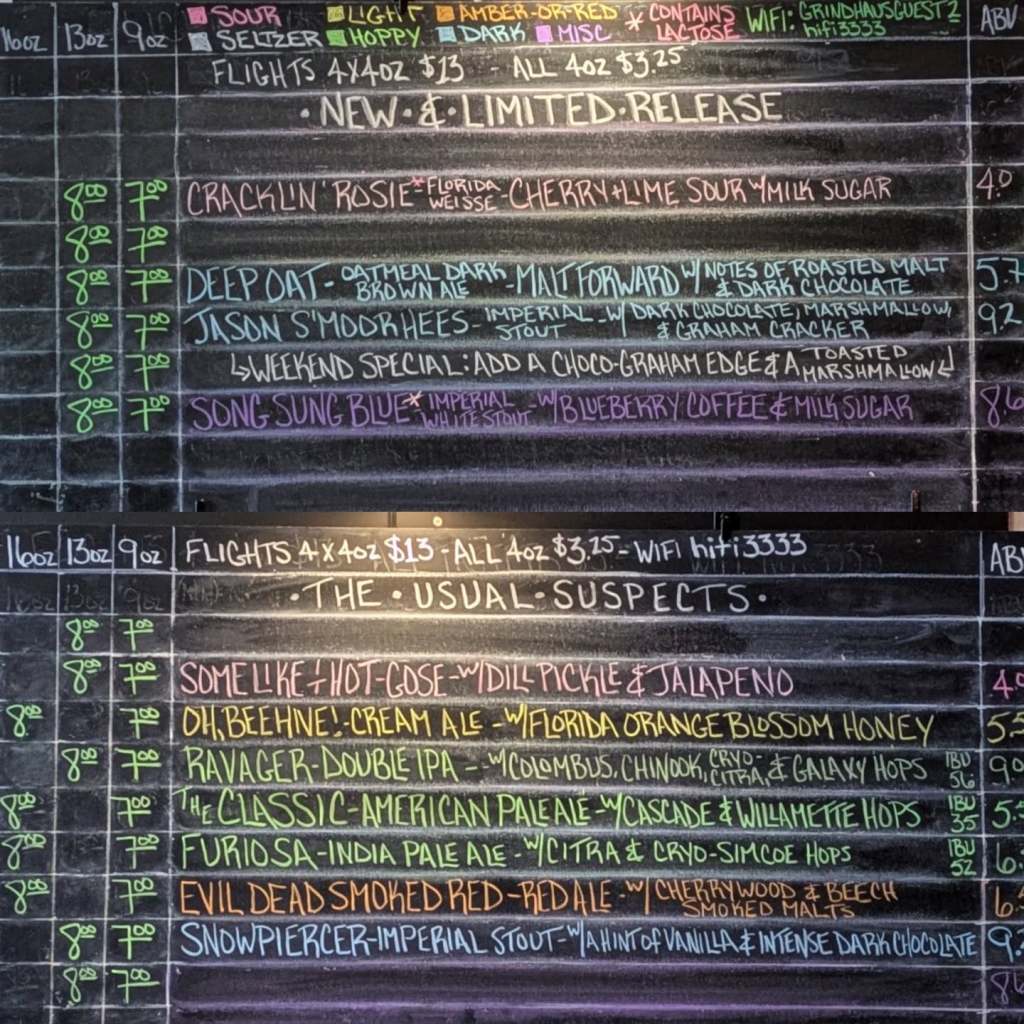 16oz 13oz 9oz SOUR LIGHT AMBER-OR-RED * CONTAINS LACTOSE WIFI: GRINDHAUSGUEST2 hifi3333 ABV
SELTZER HOPPY DARK MISC
FLIGHTS 4X4OZ $13 - ALL 4OZ $3.25
·NEW·&·LIMITED·RELEASE
8.00 7.00 CRACKLIN' ROSIE*-FLORIDA WEISSE-CHERRY+LIME SOUR W/MILK SUGAR 4.0
8.00 7.00
8.00 7.00 DEEP OAT-OATMEAL DARK BROWN ALE-MALT FORWARD W/NOTES OF ROASTED MALT & DARK CHOCOLATE 5.7
8.00 7.00 JASON S'MOORHEES-IMPERIAL STOUT-W/DARK CHOCOLATE, MARSHMALLOW, & GRAHAM CRACKER 9.2
8.00 7.00 ↳WEEKEND SPECIAL: ADD A CHOCO-GRAHAM EDGE & A TOASTED MARSHMALLOW↲
8.00 7.00 SONG SUNG BLUE* IMPERIAL WHITE STOUT-W/BLUEBERRY COFFEE & MILK SUGAR 8.6
16oz 13oz 9oz FLIGHTS 4X4OZ $13-ALL 4OZ $3.25-WIFI hifi3333 ABV
·THE·USUAL·SUSPECTS·
8.00 7.00
8.00 7.00 SOME LIKE IT HOT-GOSE-W/DILL PICKLE & JALAPENO 4.0
8.00 7.00 OH, BEEHIVE!-CREAM ALE-W/FLORIDA ORANGE BLOSSOM HONEY 5.5
8.00 7.00 RAVAGER-DOUBLE IPA-W/COLOMBUS, CHINOOK, CRYO-CITRA, & GALAXY HOPS IBU 56 9.0
8.00 7.00 THE CLASSIC-AMERICAN PALE ALE-W/CASCADE & WILLAMETTE HOPS IBU 35 5.
8.00 7.00 FURIOSA-INDIA PALE ALE-W/CITRA & CRYO-SIMCOE HOPS IBU 52 6.
8.00 7.00 EVIL DEAD SMOKED RED-RED ALE-W/CHERRYWOOD & BEECH SMOKED MALTS 6.
8.00 7.00 SNOWPIERCER-IMPERIAL STOUT-W/A HINT of VANILLA & INTENSE DARK CHOCOLATE 9.
8.00 7.00 8.6